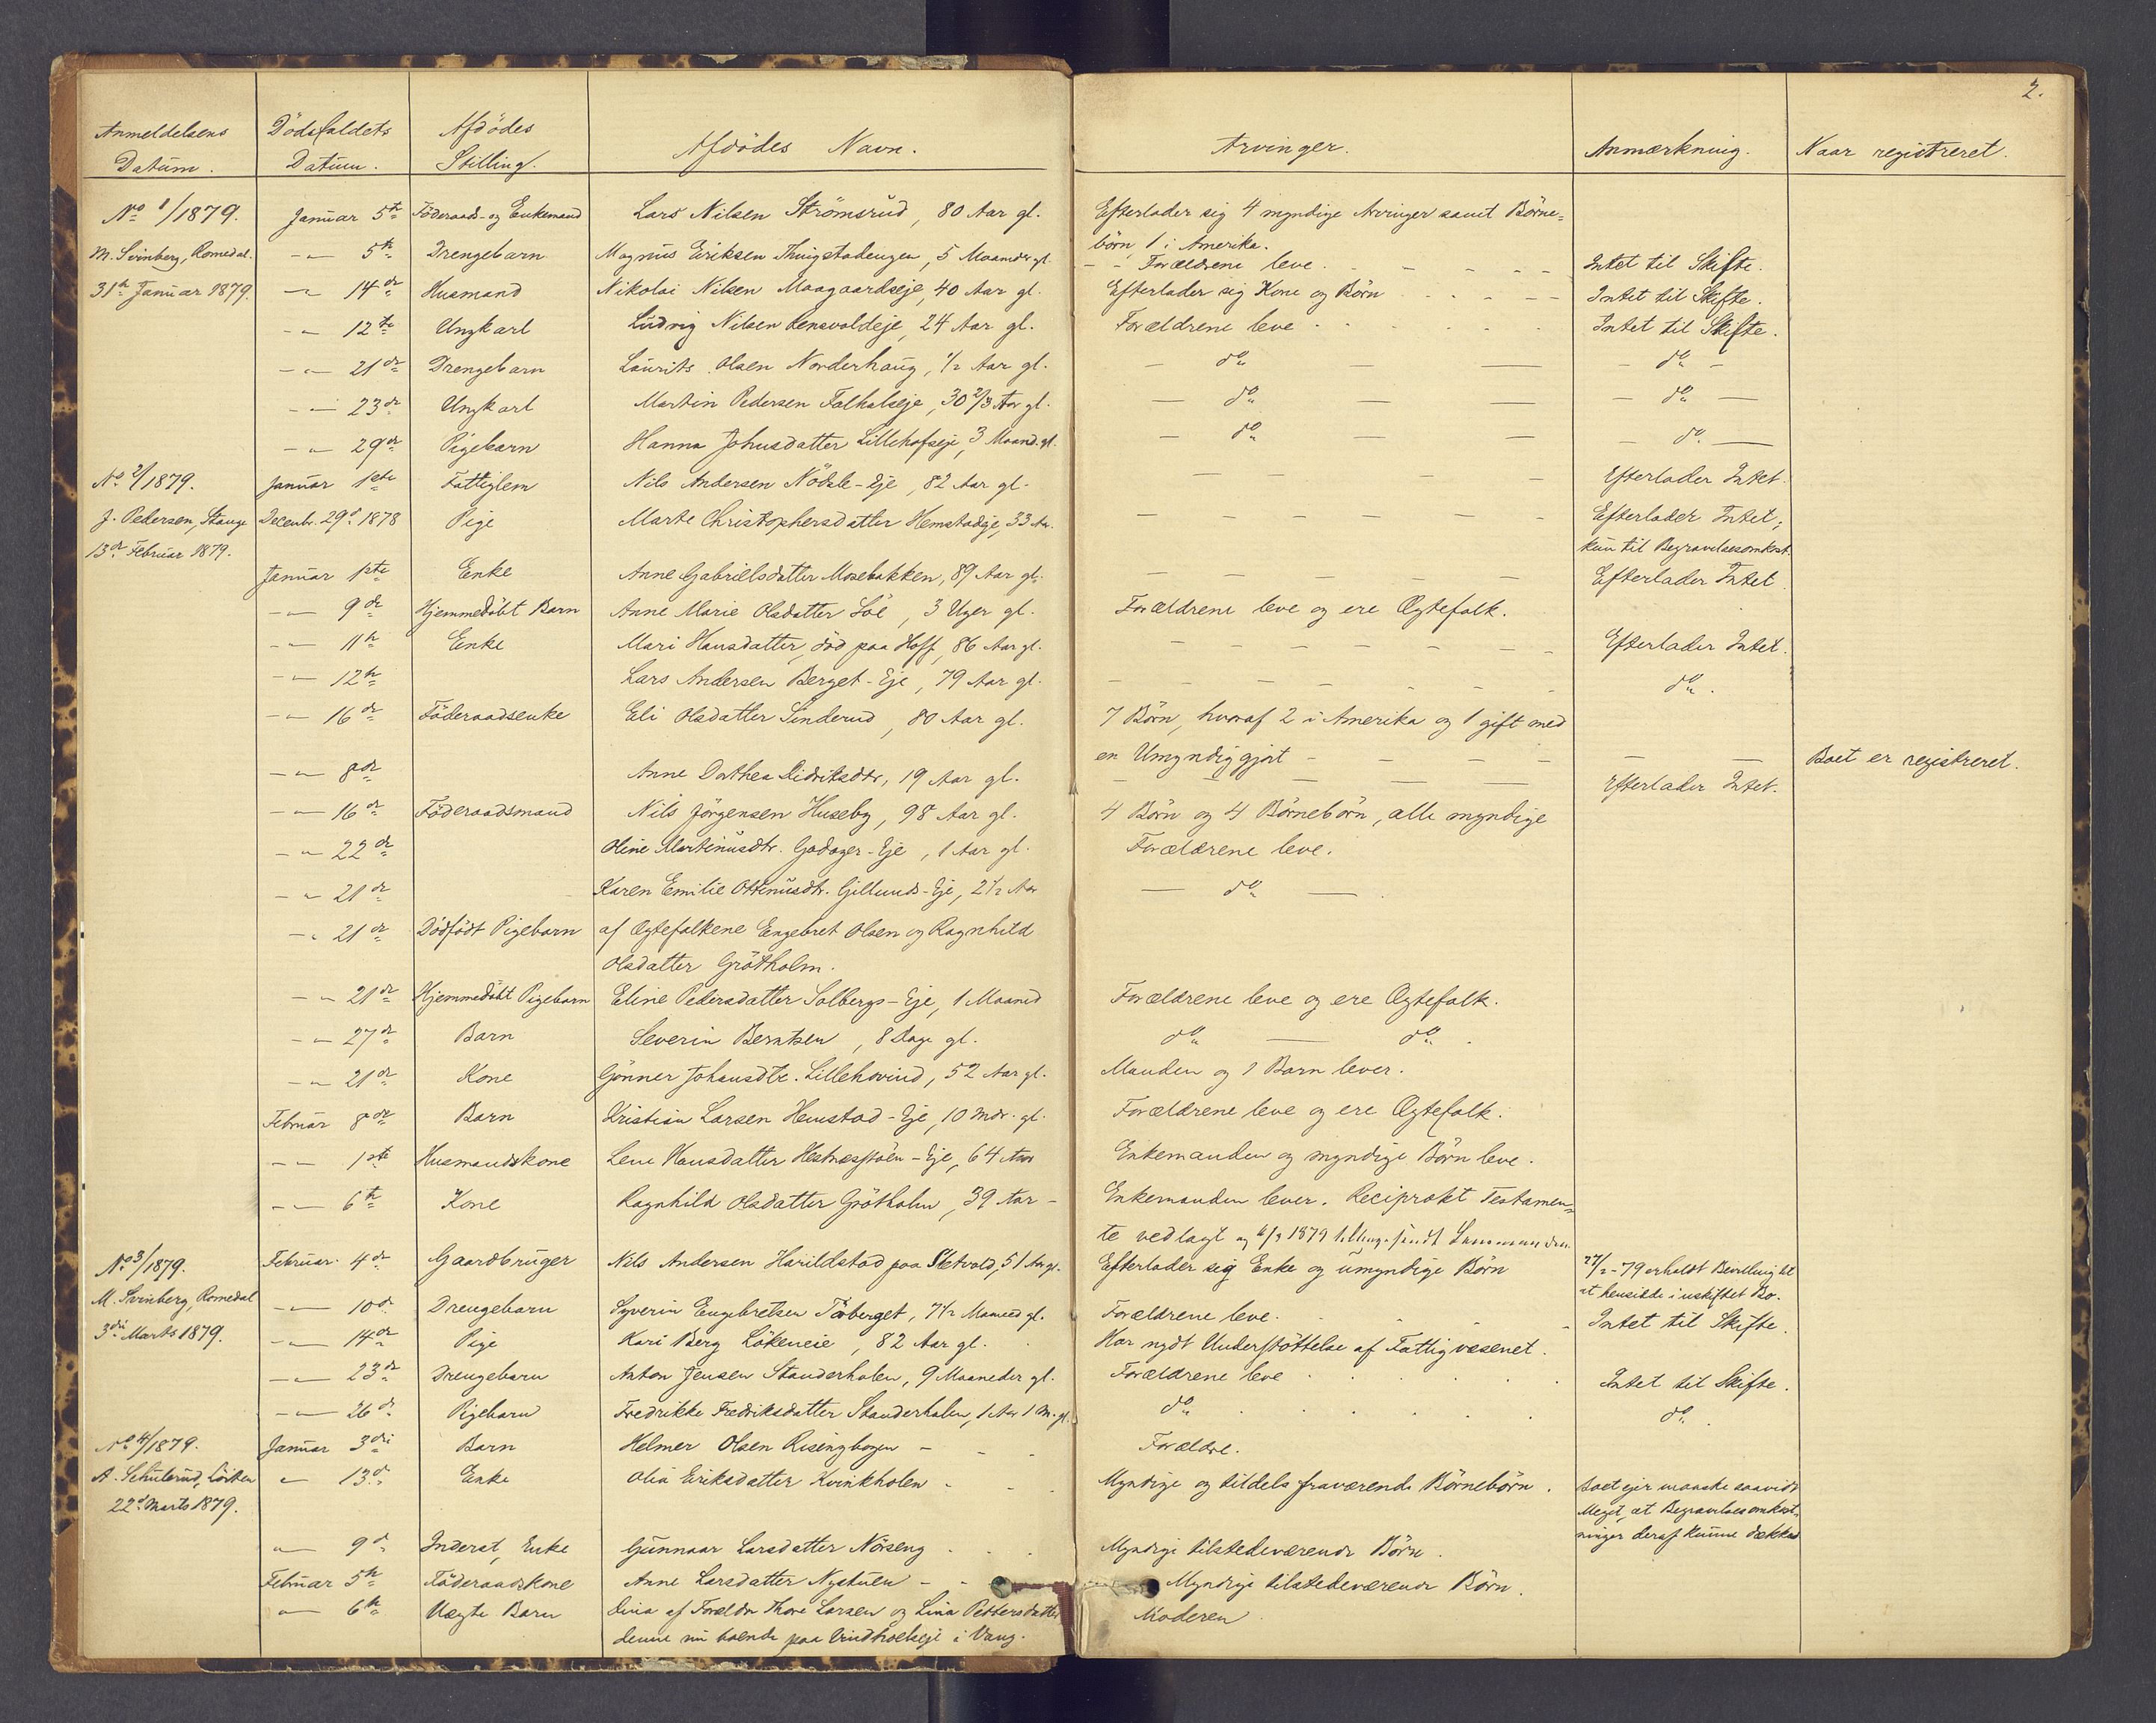 2.
Anmeldelsens Datum. Dödsfaldets Datum. Afdödes Stilling. Afdödes Navn. Arvinger. Anmærkning. Naar registreret.
No 1/1879. Januar 5te Föderaads- og Enkemand Lars Nilsen Strömsrud, 80 Aar gl. Efterlader sig 4 myndige Arvinger samt Börne-
börn 1 i Amerika.
M. Svinberg, Romedal. -"- 5te Drengebarn Magnus Eriksen Thingstadengen, 5 Maaneder gl. - - Forældrene leve. Intet til Skifte.
31te Januar 1879. -"- 14de Husmand Nikolai Nilsen Maagaardseje, 40 Aar gl. Efterlader sig Kone og Börn Intet til Skifte.
-"- 12te Ungkarl Ludvig Nilsen Lensvoldeje, 24 Aar gl. Forældrene leve Intet til Skifte.
-"- 21de Drengebarn Laurits Olsen Norderhaug, 1/2 Aar gl. - do - do -
-"- 23de Ungkarl Martin Pedersen Falkalseje, 30 2/3 Aar gl. - do - do -
-"- 29de Pigebarn Hanna Johnsdatter Lillehofseje, 3 Maand. gl. - do - do -
No 2/1879. Januar 1ste Fattiglem Nils Andersen Nödsle-Eje, 82 Aar gl. Efterlader Intet.
J. Pedersen, Stange Decembr. 29de 1878 Pige Marte Christophersdatter Hemstadeje, 33 Aar. Efterlader Intet;
13de Februar 1879. kun til Begravelsesomkost.
Januar 1ste Enke Anne Gabrielsdatter Mosebakken, 89 Aar gl. Efterlader Intet
-"- 9de Hjemmedöbt Barn Anne Marie Olsdatter Löe, 3 Uger gl. Forældrene leve og ere Ægtefolk.
-"- 11te Enke Mari Hansdatter, död paa Hoff, 86 Aar gl. Efterlader Intet.
-"- 12te Lars Andersen Berget-Eje, 79 Aar gl. do.
-"- 16de Föderaadsenke Eli Olsdatter Sinderud, 80 Aar gl. 7 Börn, hvoraf 2 i Amerika og 1 gift med
en Umyndiggjort Boet er registreret.
-"- 8de Anne Dorthea Didriksdtr, 19 Aar gl. Efterlader Intet.
-"- 16de Föderaadsmand Nils Jörgensen Huseby, 98 Aar gl. 4 Börn og 4 Börnebörn, alle myndige
-"- 22de Oline Martinusdtr. Godager-Eje, 1 Aar gl. Forældrene leve.
-"- 21de Karen Emilie Ottinusdtr. Gillunds-Eje, 2 1/2 Aar - do -
-"- 21de Dödfödt Pigebarn af Ægtefolkene Engebret Olsen og Ragnhild
Olsdatter Grötholm.
-"- 21de Hjemmedöbt Pigebarn Eline Pedersdatter Solbergs-Eje, 1 Maaned Forældrene leve og ere Ægtefolk.
-"- 27de Barn Severin Berntsen, 8 Dage gl. do - do.
-"- 21de Kone Gönner Johansdtr. Lillehovind, 52 Aar gl. Manden og 1 Barn lever.
Februar 8de Barn Kristian Larsen Hemstad-Eje, 10 Mdr. gl. Forældrene leve og ere Ægtefolk.
-"- 1ste Husmandskone Lene Hansdatter Hestnæsstöen-Eje, 64 Aar Enkemanden og myndige Börn leve.
-"- 6te Kone Ragnhild Olsdatter Grötholm, 39 Aar - Enkemanden lever. Reciprokt Testamen-
te vedlagt og 6/3 1879 tilbagesendt Lensmanden
No 3/1879. Februar 4de Gaardbruger Nils Andersen Harildstad paa Sletvold, 51 Aar gl. Efterlader sig Enke og umyndige Börn 27/2-79 erholdt Bevilling til
at hensidde i uskiftet Bo.
M. Svinberg, Romedal -"- 10de Drengebarn Syverin Engebretsen Taaberget, 7 1/2 Maaned gl. Forældrene leve. Intet til Skifte.
3die Marts 1879. -"- 14de Pige Kari Berg Lökeneie, 82 Aar gl. Har nydt Understöttelse af Fattigvæsenet.
-"- 23de Drengebarn Anton Jensen Standerholen, 9 Maaneder gl. Forældrene leve Intet til Skifte.
-"- 26de Pigebarn Fredrikke Fredriksdatter Standerholen, 1 Aar 1 M. gl. do do.
No 4/1879. Januar 3die Barn Helmer Olsen Risengbogen - Forældre.
A. Schulerud, Löiten " 13de Enke Olia Eriksdatter Kvinkholen - Myndige og tildels fraværende Börnebörn. Boet ejer maaske saavidt
22de Marts 1879. Meget, at Begravelsesomkost-
ninger deraf kunne dækkes
" 9de Inderst, Enke Gunnaar Larsdatter Nörseng Myndige tilstedeværende Börn.
Februar 5te Föderaadskone Anne Larsdatter Nystuen - Myndige tilstedeværende Börn.
" 6te Uægte Barn Dina af Forældre Thore Larsen og Lina Pettersdatter Moderen
denne nu boende paa Vindholseje i Vang.